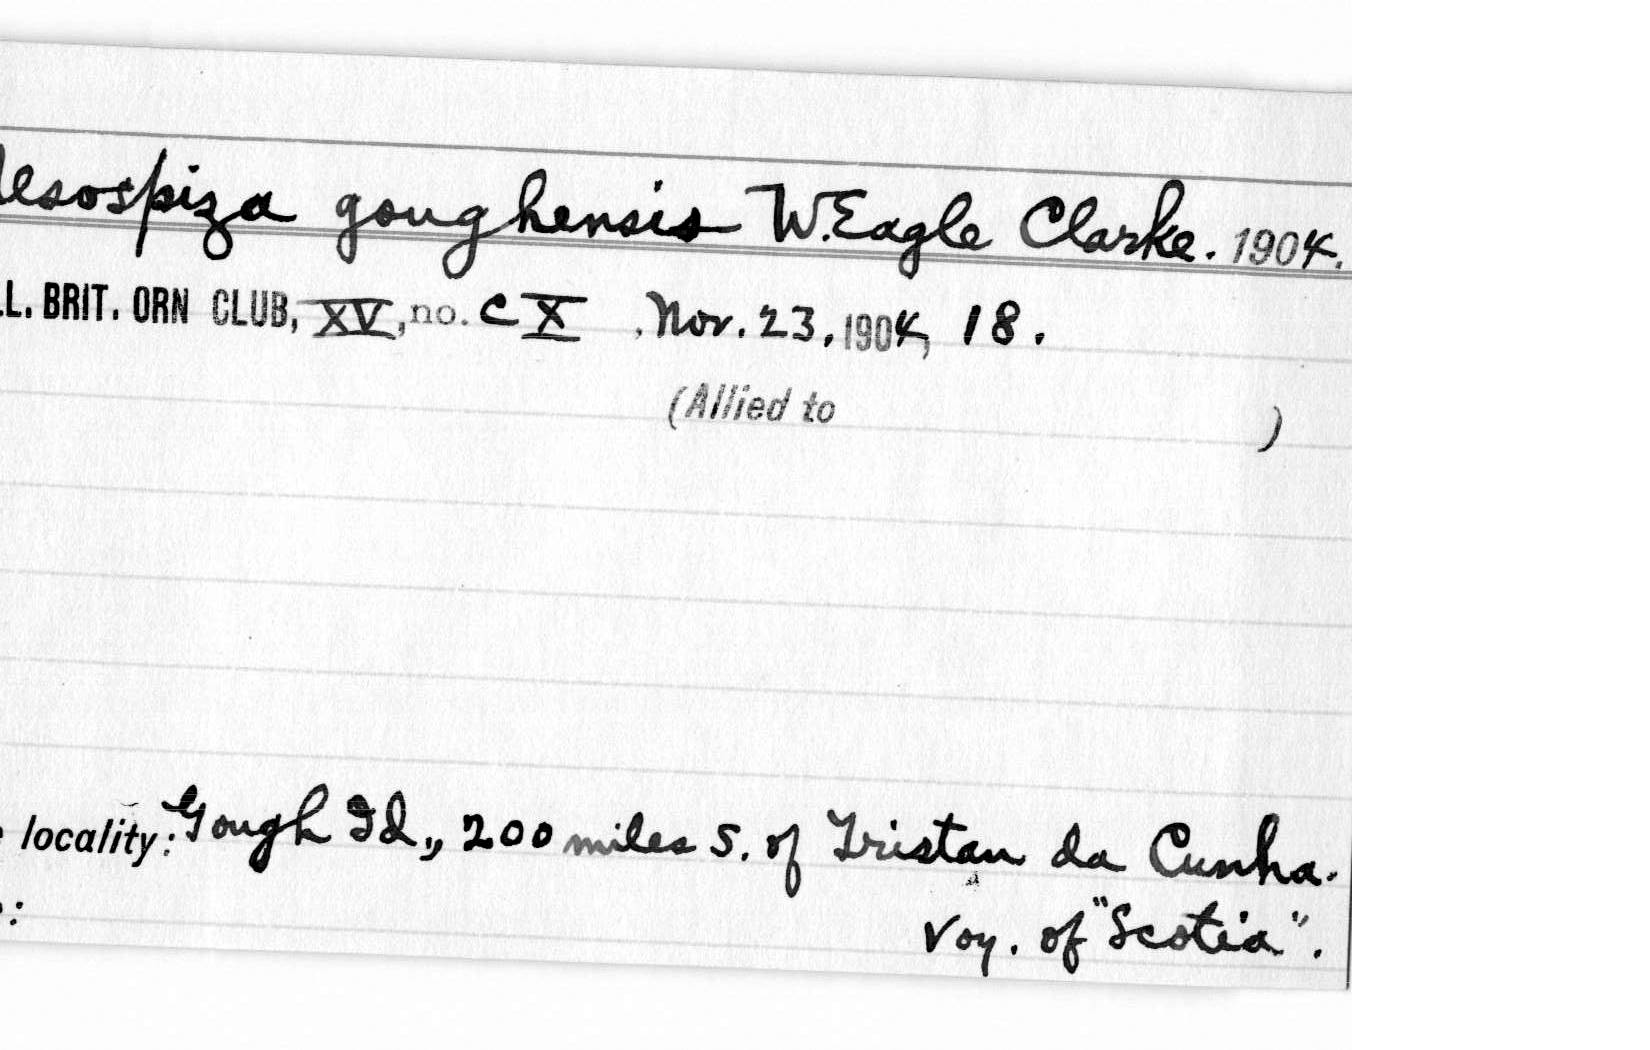 esospiza goughensis W. Eagle Clarke. 1904.
L. BRIT. ORN CLUB, XV, no. CX, Nov. 23, 1904, 18.
(Allied to )
locality: Gough Id., 200 miles S. of Tristan da Cunha.
: Voy. of "Scotia".